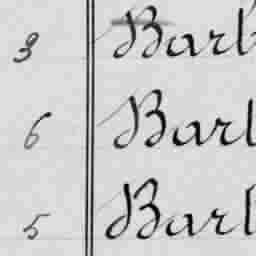 3 Barb
6 Barl
5 Barl